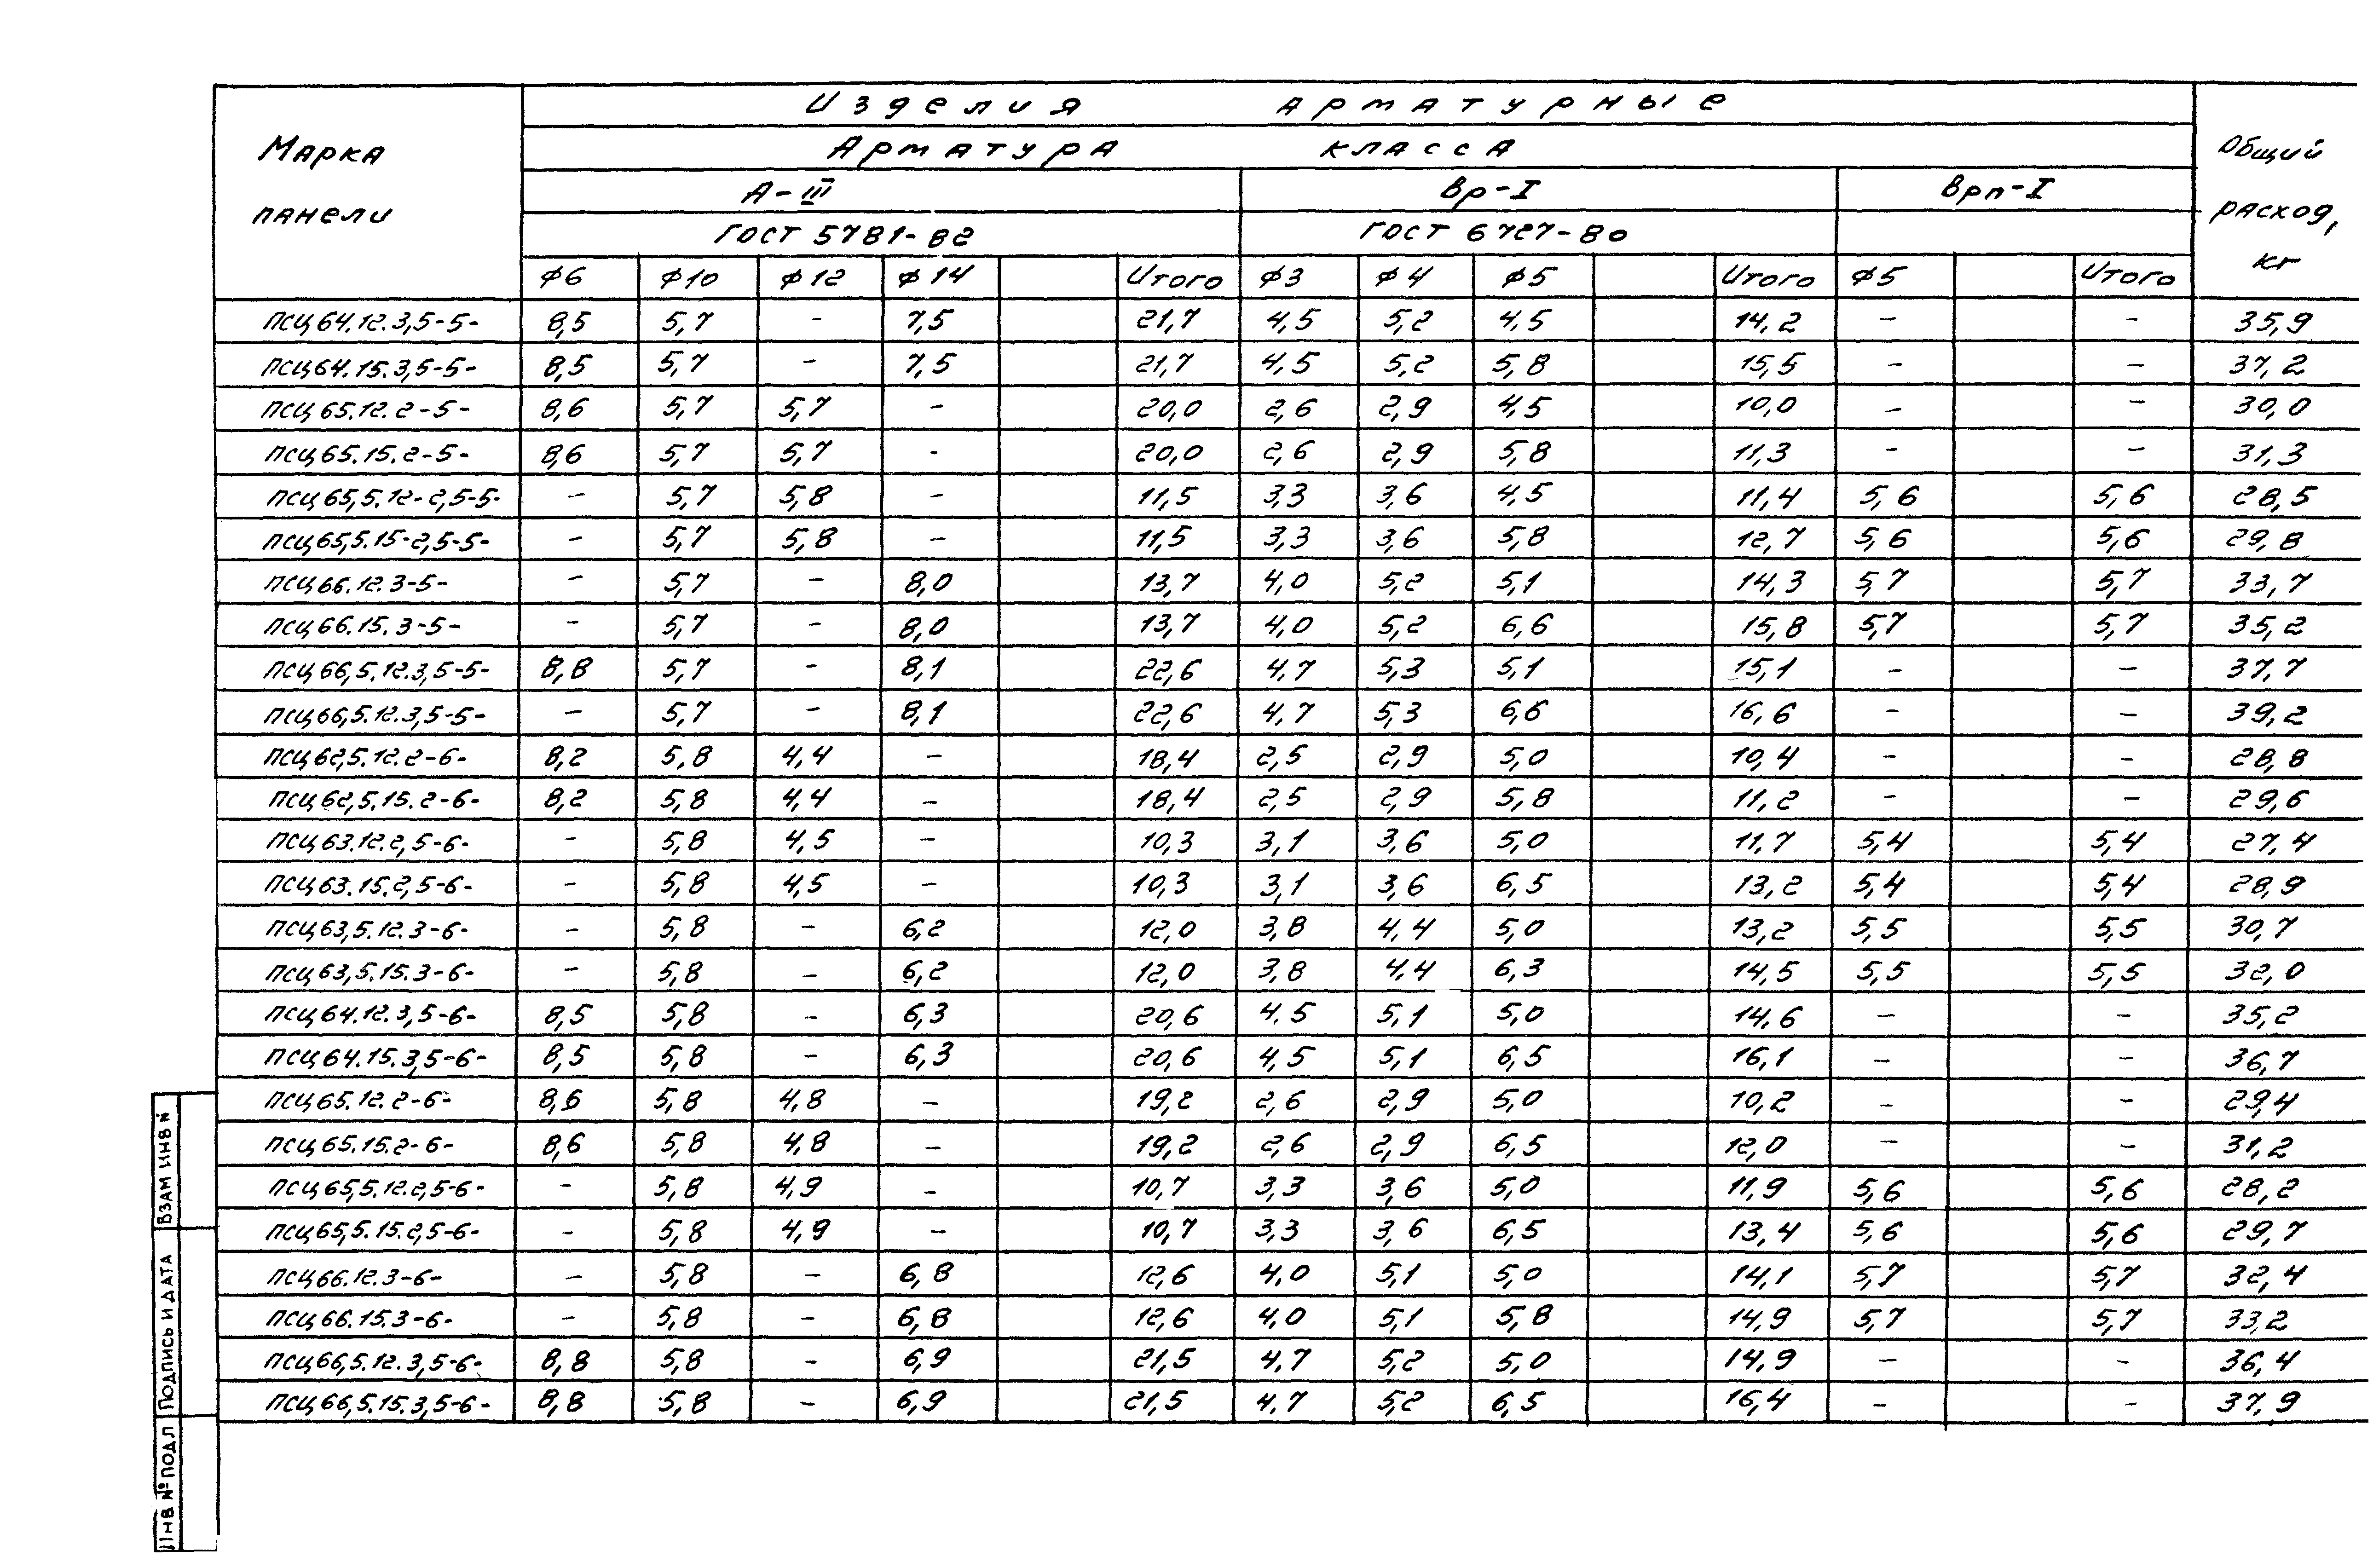 Изделия арматурные
Марка панели
Арматура класса
Общий расход, кг
А-III Вр-I Врп-I
ГОСТ 5781-82 ГОСТ 6727-80
Ф6 Ф10 Ф12 Ф14 Итого Ф3 Ф4 Ф5 Итого Ф5 Итого
ПСЦ64.12.3,5-5- 8,5 5,7 - 7,5 21,7 4,5 5,2 4,5 14,2 - - 35,9
ПСЦ64.15.3,5-5- 8,5 5,7 - 7,5 21,7 4,5 5,2 5,8 15,5 - - 37,2
ПСЦ65.12.2-5- 8,6 5,7 5,7 - 20,0 2,6 2,9 4,5 10,0 - - 30,0
ПСЦ65.15.2-5- 8,6 5,7 5,7 - 20,0 2,6 2,9 5,8 11,3 - - 31,3
ПСЦ65,5.12-2,5-5- - 5,7 5,8 - 11,5 3,3 3,6 4,5 11,4 5,6 5,6 28,5
ПСЦ65,5.15-2,5-5- - 5,7 5,8 - 11,5 3,3 3,6 5,8 12,7 5,6 5,6 29,8
ПСЦ66.12.3-5- - 5,7 - 8,0 13,7 4,0 5,2 5,1 14,3 5,7 5,7 33,7
ПСЦ66.15.3-5- - 5,7 - 8,0 13,7 4,0 5,2 6,6 15,8 5,7 5,7 35,2
ПСЦ66,5.12.3,5-5- 8,8 5,7 - 8,1 22,6 4,7 5,3 5,1 15,1 - - 37,7
ПСЦ66,5.12.3,5-5- - 5,7 - 8,1 22,6 4,7 5,3 6,6 16,6 - - 39,2
ПСЦ62,5.12.2-6- 8,2 5,8 4,4 - 18,4 2,5 2,9 5,0 10,4 - - 28,8
ПСЦ62,5.15.2-6- 8,2 5,8 4,4 - 18,4 2,5 2,9 5,8 11,2 - - 29,6
ПСЦ63.12.2,5-6- - 5,8 4,5 - 10,3 3,1 3,6 5,0 11,7 5,4 5,4 27,4
ПСЦ63.15.2,5-6- - 5,8 4,5 - 10,3 3,1 3,6 6,5 13,2 5,4 5,4 28,9
ПСЦ63,5.12.3-6- - 5,8 - 6,2 12,0 3,8 4,4 5,0 13,2 5,5 5,5 30,7
ПСЦ63,5.15.3-6- - 5,8 - 6,2 12,0 3,8 4,4 6,3 14,5 5,5 5,5 32,0
ПСЦ64.12.3,5-6- 8,5 5,8 - 6,3 20,6 4,5 5,1 5,0 14,6 - - 35,2
ПСЦ64.15.3,5-6- 8,5 5,8 - 6,3 20,6 4,5 5,1 6,5 16,1 - - 36,7
ПСЦ65.12.2-6- 8,6 5,8 4,8 - 19,2 2,6 2,9 5,0 10,2 - - 29,4
ПСЦ65.15.2-6- 8,6 5,8 4,8 - 19,2 2,6 2,9 6,5 12,0 - - 31,2
ПСЦ65,5.12.2,5-6- - 5,8 4,9 - 10,7 3,3 3,6 5,0 11,9 5,6 5,6 28,2
ПСЦ65,5.15.2,5-6- - 5,8 4,9 - 10,7 3,3 3,6 6,5 13,4 5,6 5,6 29,7
ПСЦ66.12.3-6- - 5,8 - 6,8 12,6 4,0 5,1 5,0 14,1 5,7 5,7 32,4
ПСЦ66.15.3-6- - 5,8 - 6,8 12,6 4,0 5,1 5,8 14,9 5,7 5,7 33,2
ПСЦ66,5.12.3,5-6- 8,8 5,8 - 6,9 21,5 4,7 5,2 5,0 14,9 - - 36,4
ПСЦ66,5.15.3,5-6- 8,8 5,8 - 6,9 21,5 4,7 5,2 6,5 16,4 - - 37,9
ВЗАМ ИНВ №
ПОДПИСЬ И ДАТА
ИНВ № ПОДЛ